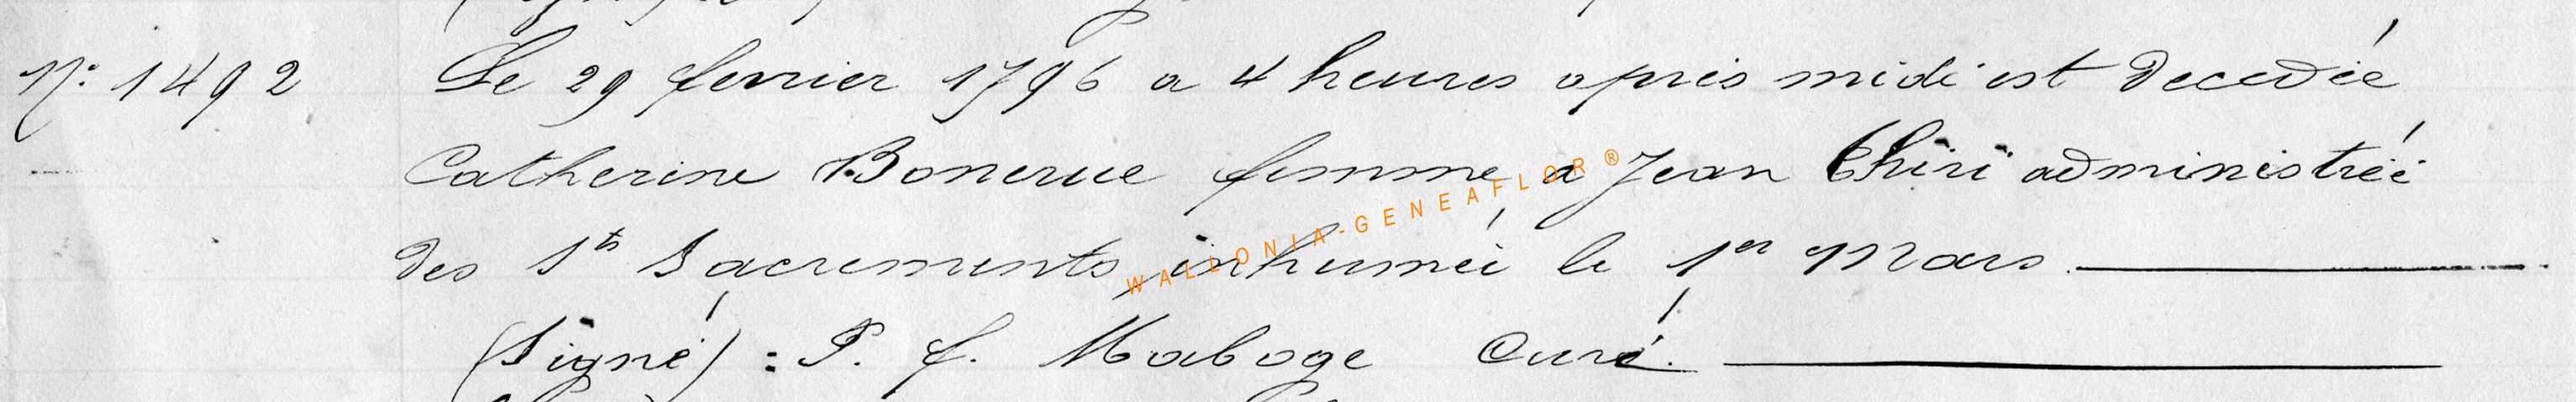 N°: 1492 Le 29 fevrier 1796 a 4 heures apres midi est decedée
Catherine Bonerue femme a Jean Thiri administrée
des Sts Sacrements, inhumée le 1er Mars.
(Signé) : P. f. Maboge Curé.
WALLONIA-GENEAFLOR®